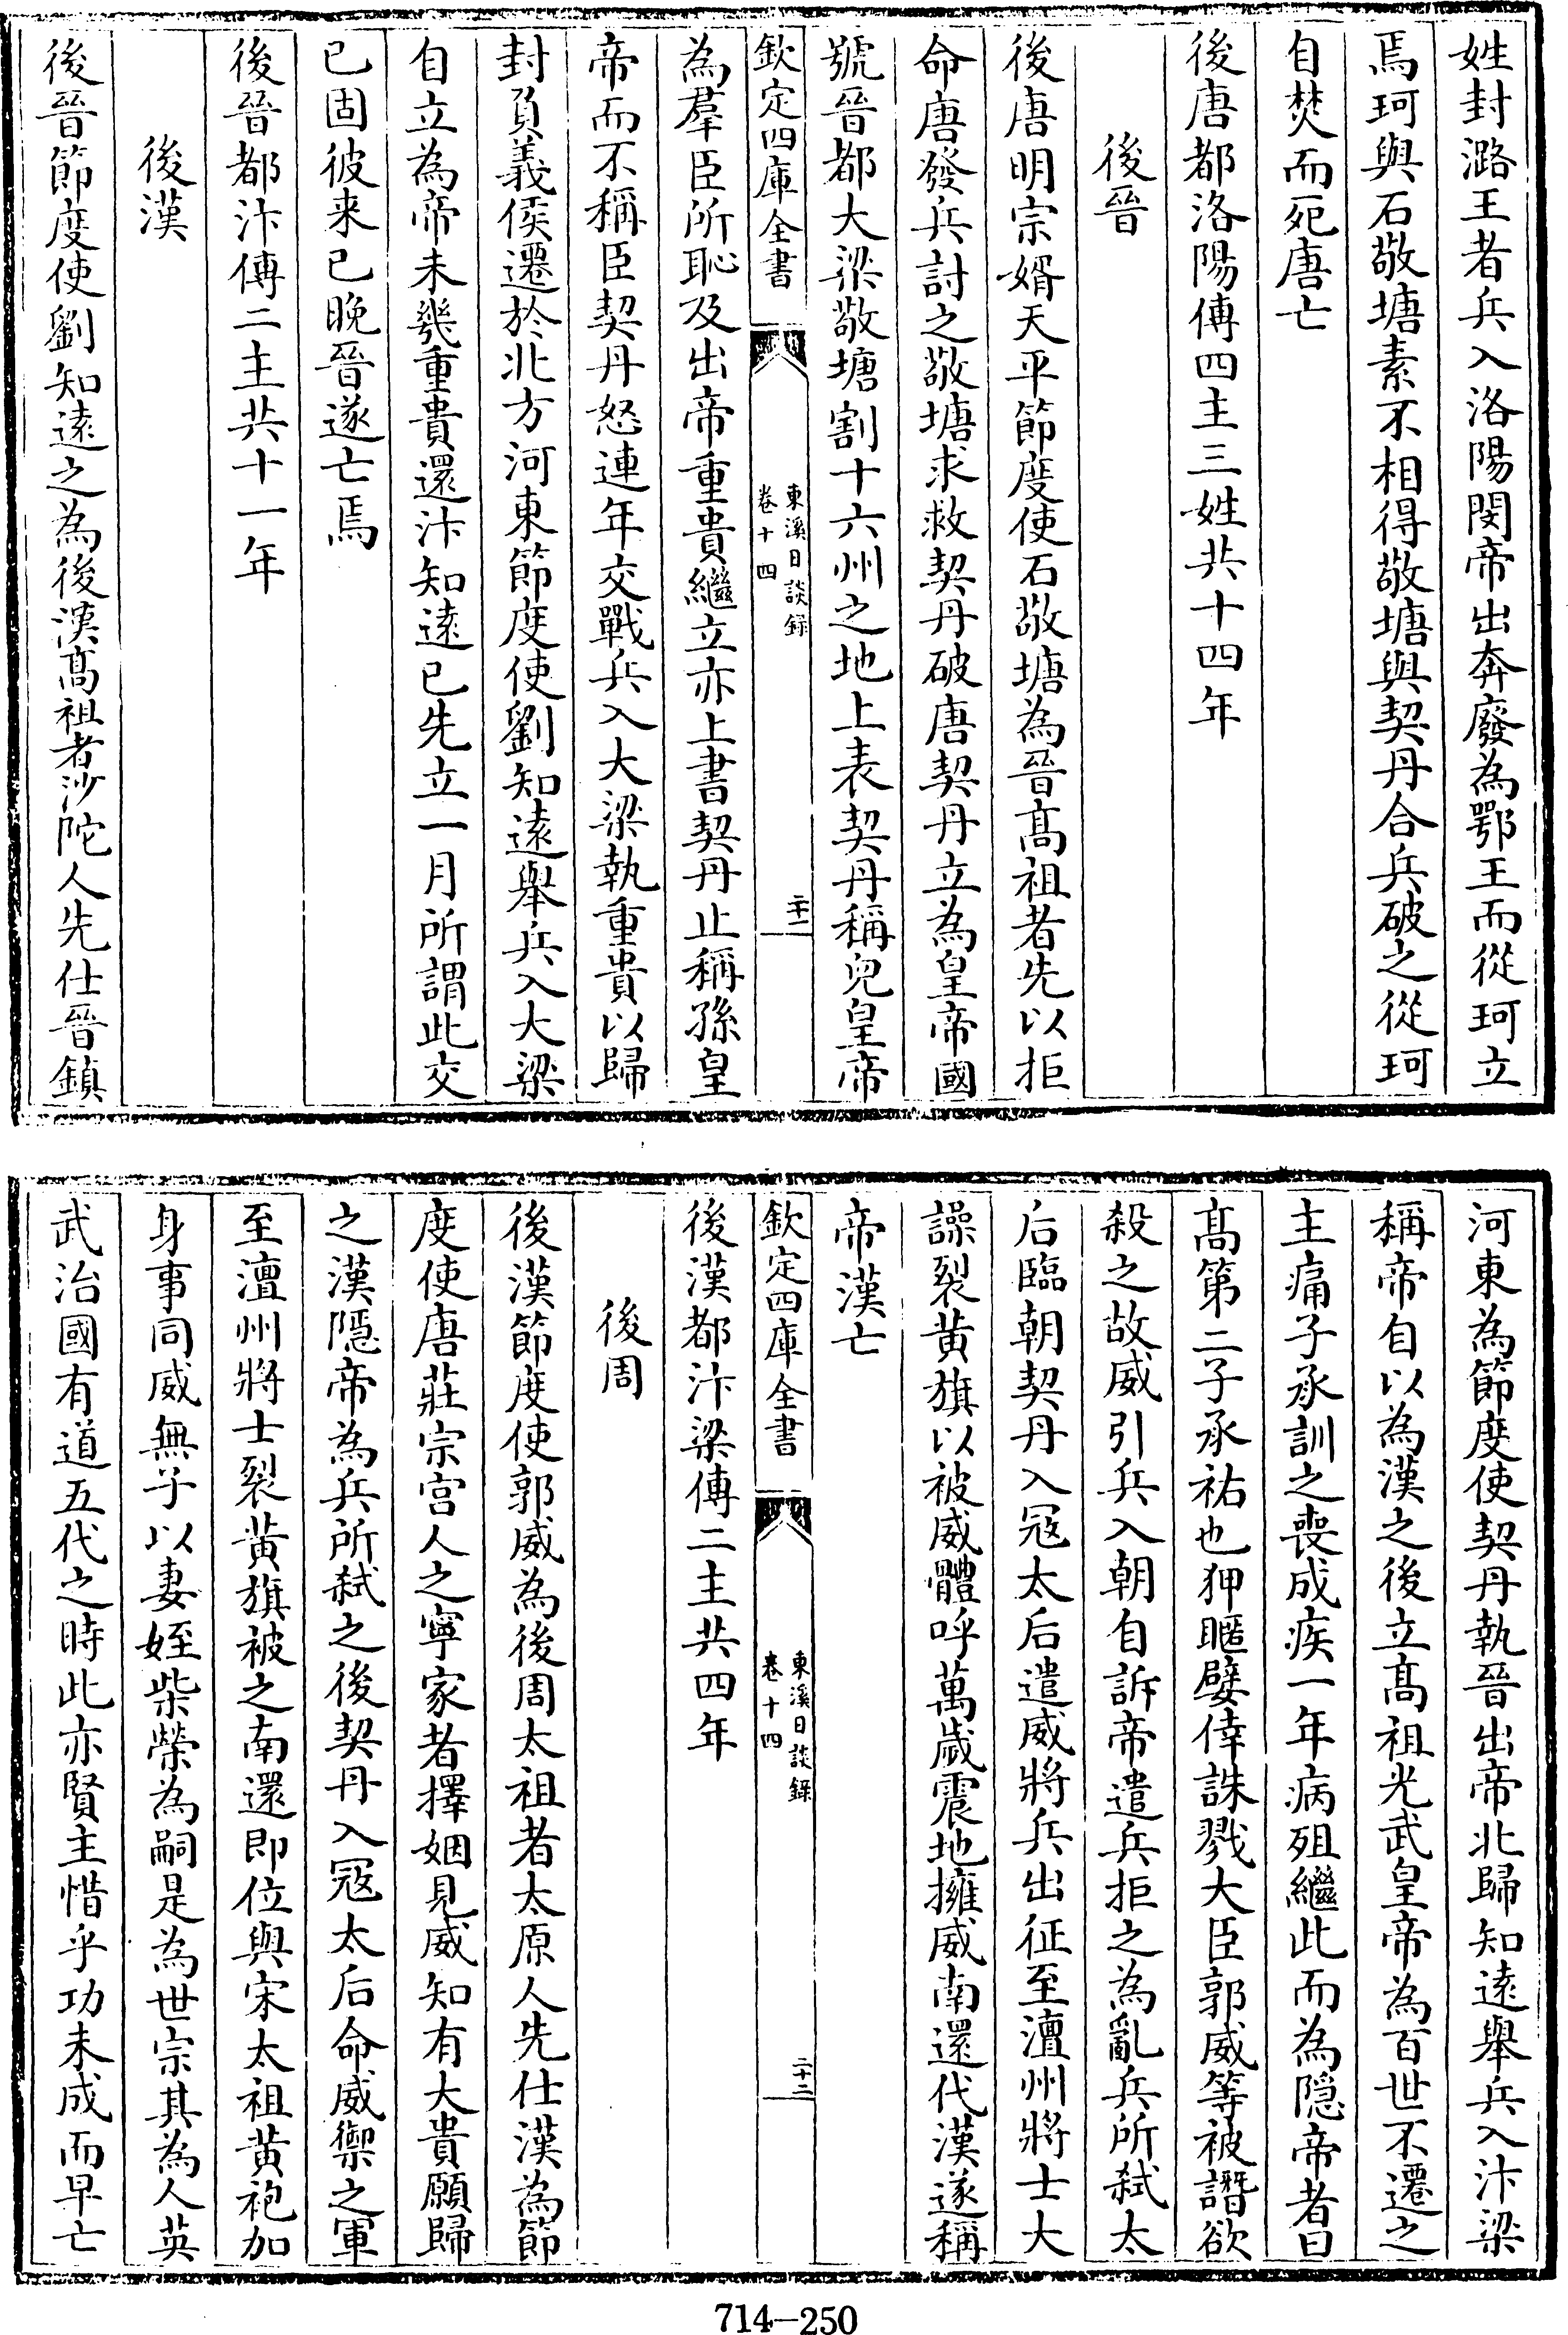 姓封潞王者兵入洛陽閔帝出奔廢為鄂王而從珂立
焉珂與石敬塘素不相得敬塘與契丹合兵破之從珂
自焚而死唐亡
後唐都洛陽傳四主三姓共十四年
後晉
後唐明宗婿天平節度使石敬塘為晉髙祖者先以拒
命唐發兵討之敬塘求救契丹破唐契丹立為皇帝國
號晉都大梁敬塘割十六州之地上表契丹稱兒皇帝
欽定四庫全書
東溪日談録
卷十四
二十二
為羣臣所恥及出帝重貴繼立亦上書契丹止稱孫皇
帝而不稱臣契丹怒連年交戰兵入大梁執重貴以歸
封負義侯遷於北方河東節度使劉知遠舉兵入大梁
自立為帝未幾重貴還汴知遠已先立一月所謂此交
已固彼来已晚晉遂亡焉
後晉都汴傳二主共十一年
後漢
後晉節度使劉知遠之為後漢髙祖者沙陀人先仕晉鎮
河東為節度使契丹執晉出帝北歸知遠舉兵入汴梁
稱帝自以為漢之後立髙祖光武皇帝為百世不遷之
主痛子承訓之喪成疾一年病殂繼此而為隱帝者曰
髙第二子承祐也狎暱嬖倖誅戮大臣郭威等被譖欲
殺之故威引兵入朝自訴帝遣兵拒之為亂兵所弑太
后臨朝契丹入冦太后遣威將兵出征至澶州將士大
譟裂黄旗以被威體呼萬歲震地擁威南還代漢遂稱
帝漢亡
欽定四庫全書
東溪日談録
卷十四
二十三
後漢都汴梁傳二主共四年
後周
後漢節度使郭威為後周太祖者太原人先仕漢為節
度使唐莊宗宫人之寧家者擇姻見威知有大貴願歸
之漢隱帝為兵所弑之後契丹入冦太后命威禦之軍
至澶州將士裂黄旗被之南還即位與宋太祖黄袍加
身事同威無子以妻姪柴榮為嗣是為世宗其為人英
武治國有道五代之時此亦賢主惜乎功未成而早亡
714-250